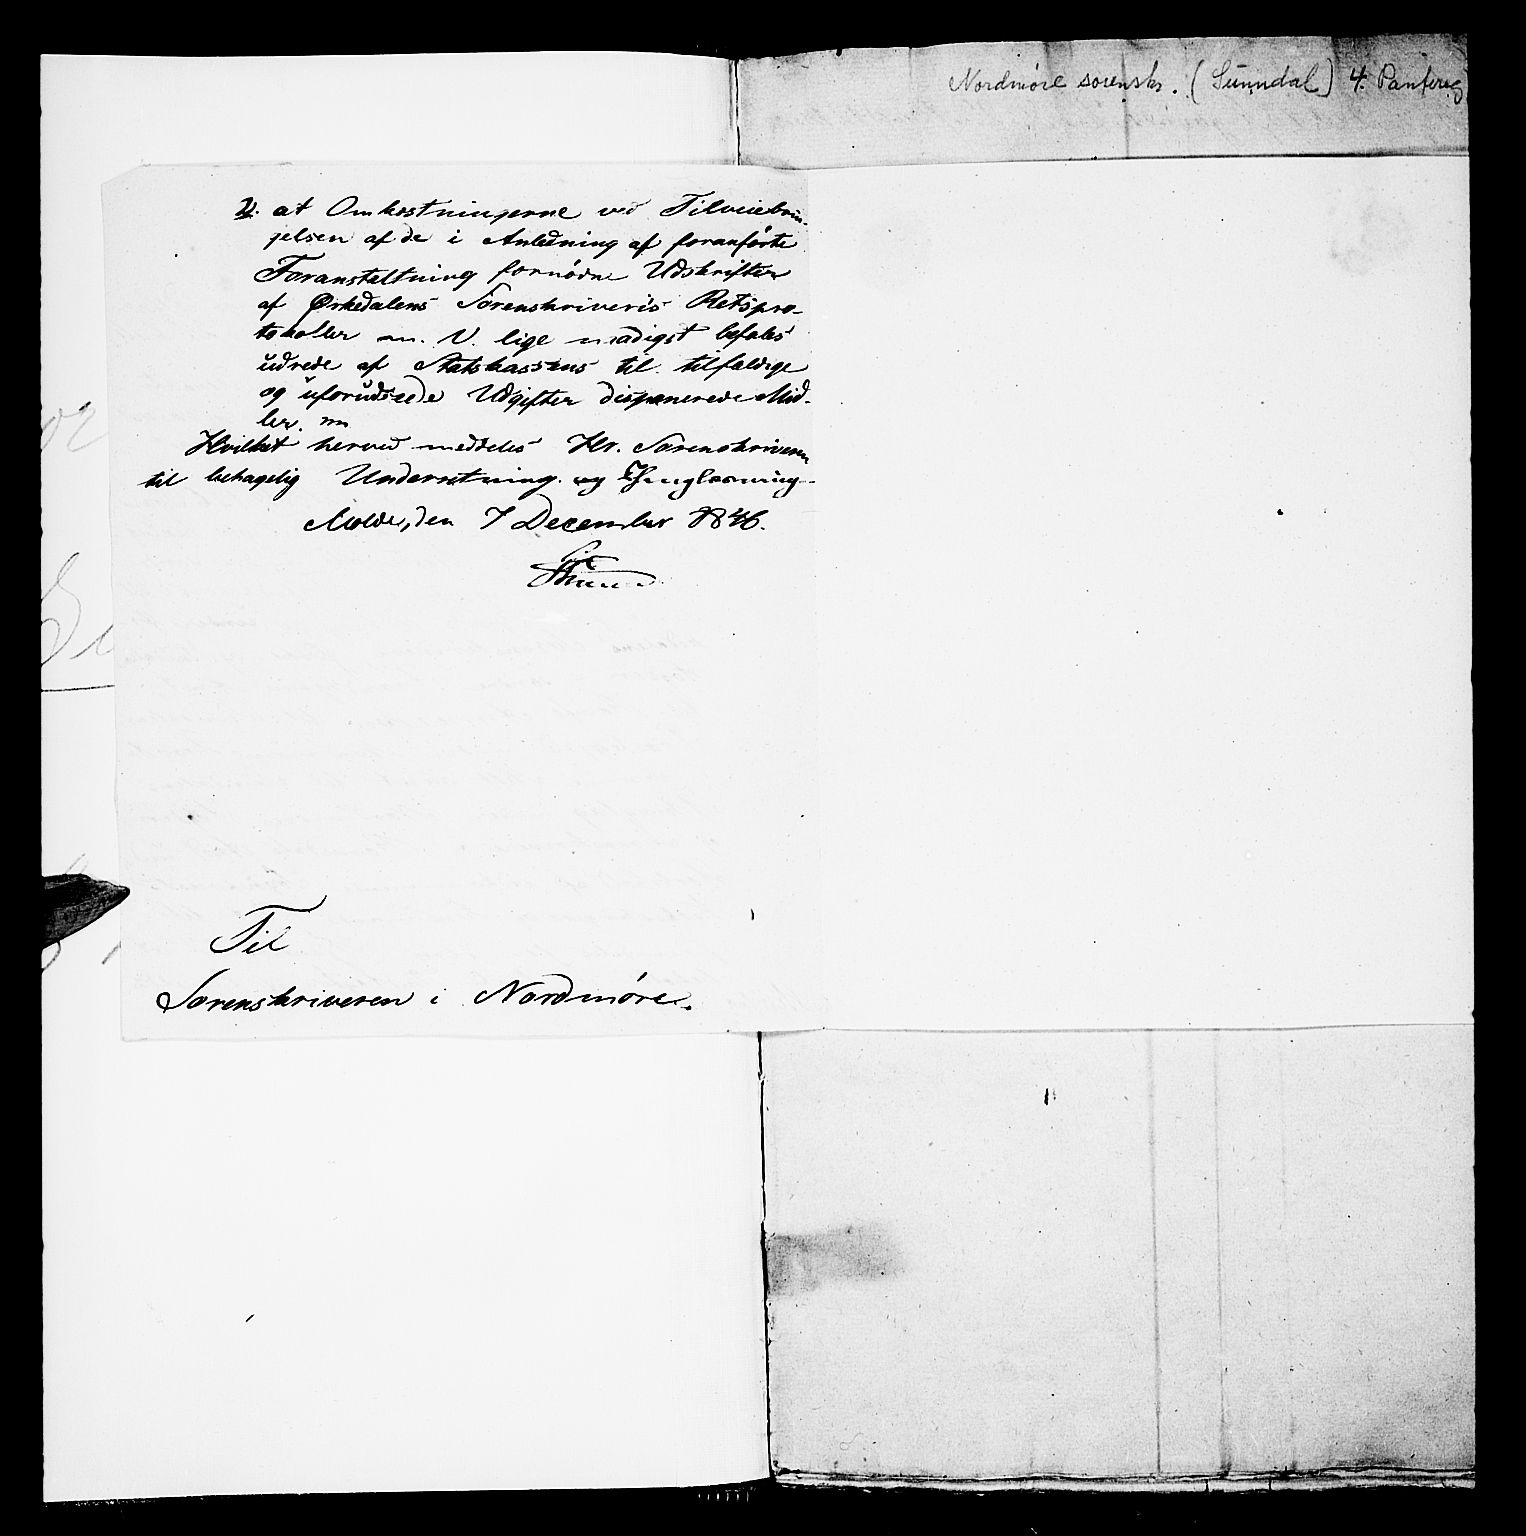 Nordmøre sorenskr. (Sunndal) 4. Pantereg
2. at Omkostningerne ved Tilveiebrin-
gelsen af de i Anledning af foranførte
Foranstaltning fornødne Udskrifter
af Ørkedalens Sorenskriveris Retspro-
tokoller m. V. lige naadigst befales
udrede af Statskassens til tilfældige
og uforudseede Udgifter disponerede Mid-
ler.
Hvilket herved meddeles Hr. Sorenskriveren
til behagelig Underretning og Thinglæsning.
Molde, den 7 December 1846.
Til
Sorenskriveren i Nordmøre.